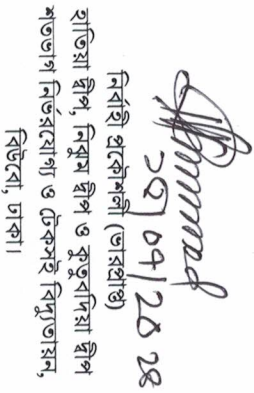 নির্বাহী প্রকৌশলী (ভারপ্রাপ্ত)
হাতিয়া দ্বীপ, নিঝুম দ্বীপ ও কুতুবদিয়া দ্বীপ
শতভাগ নির্ভরযোগ্য ও টেকসই বিদ্যুতায়ন,
বিউবো, ঢাকা।